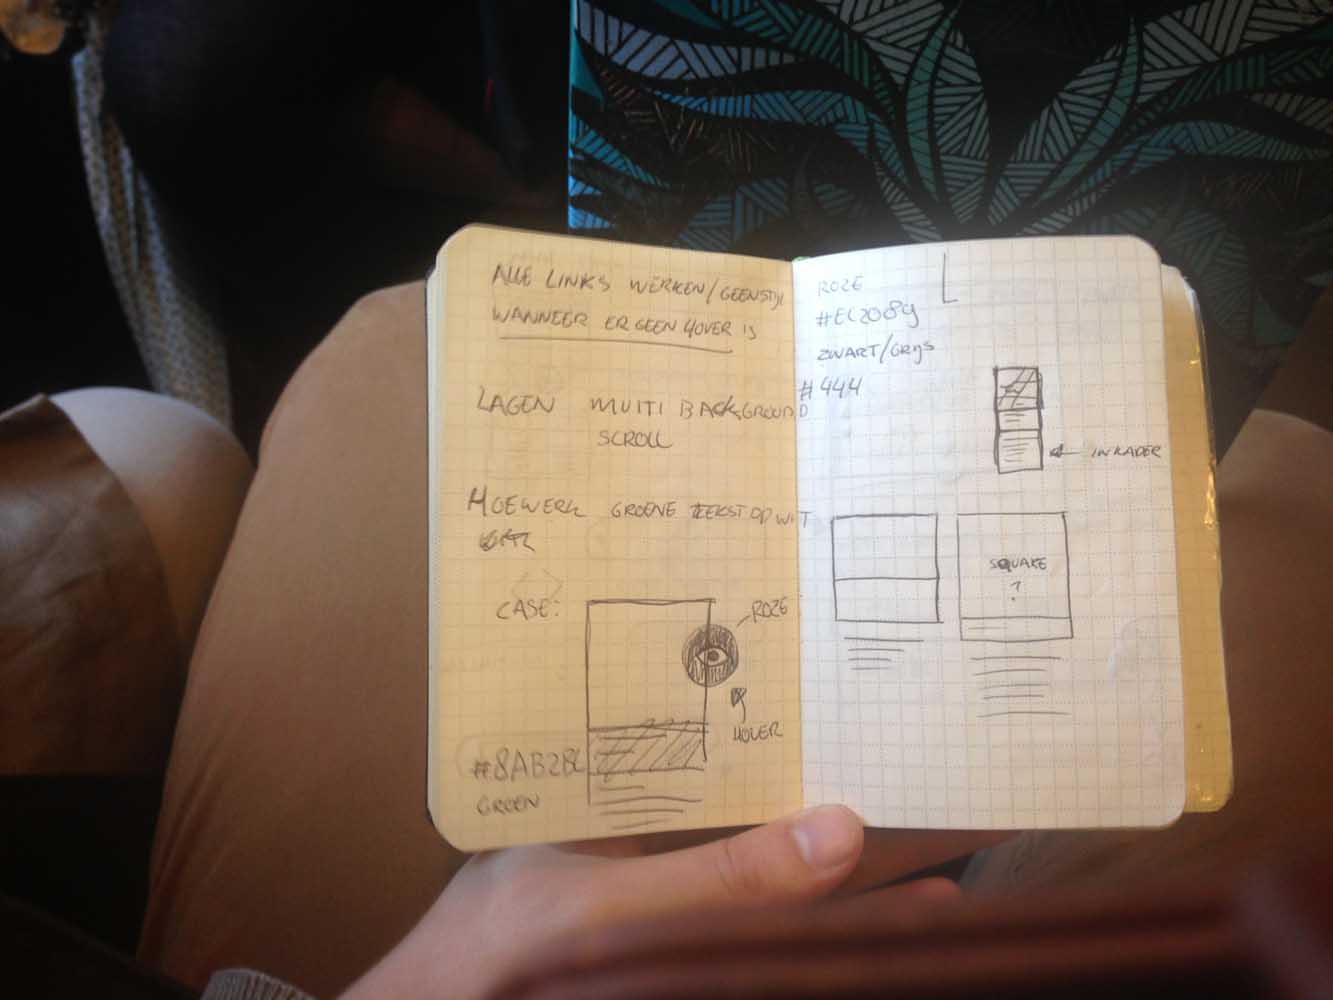 ALLE LINKS WERKEN/GEENSTIJL
WANNEER ER GEEN HOVER IS
LAGEN MULTI BACKGROUND
SCROLL
HOEWERK GROENE TEKST OP WIT
CASE:
ROZE
HOVER
#8AB2BC
GROEN
ROZE
#EC2089
ZWART/GRIJS
#444
IN KADER
SQUARE
?